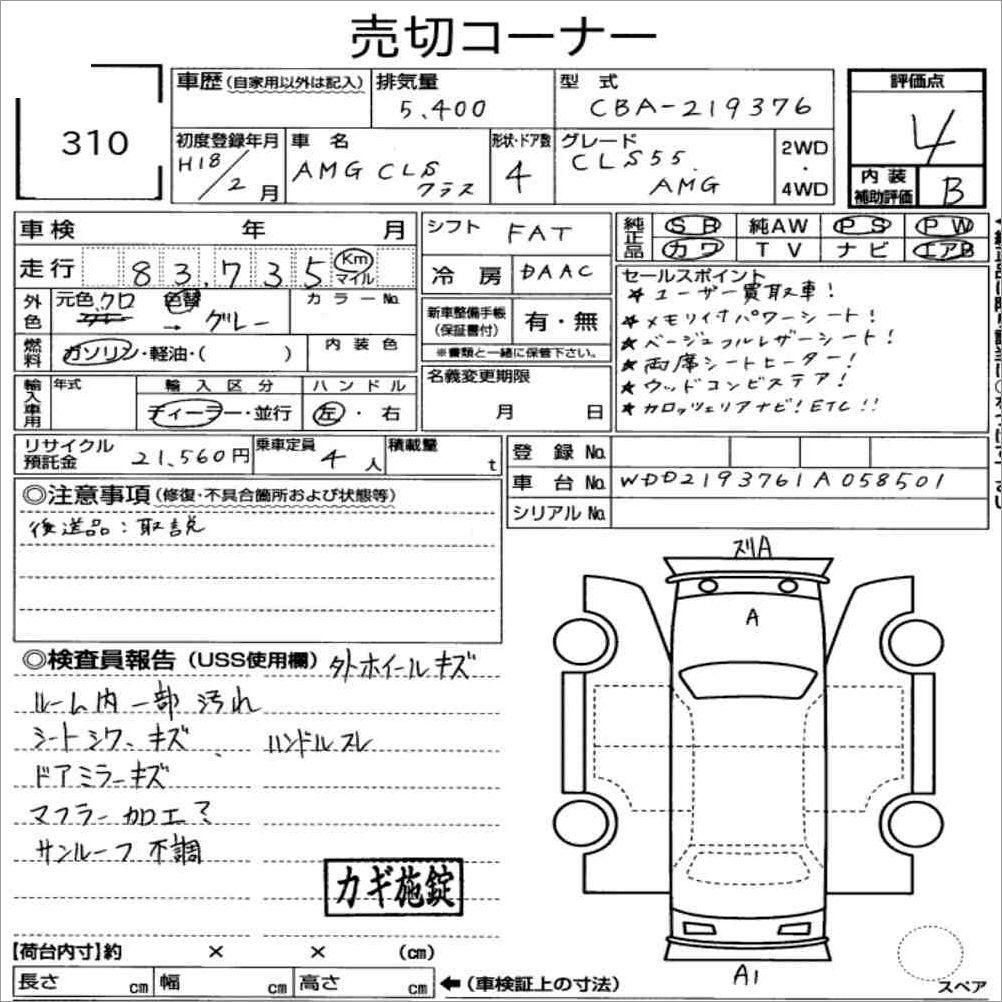 売切コーナー
310
車歴(自家用以外は記入)
排気量
5.400
型 式
CBA-219376
評価点
4
初度登録年月
H18/2月
車 名
AMG CLSクラス
形状・ドア数
4
グレード
CLS55.
AMG
2WD
・
4WD
内 装
補助評価
B
車検 年 月
走行 83,735 Km
マイル
外色
元色 クロ 色替
→ グレー
カラーNo.
燃料
ガソリン・軽油・( )
内 装 色
輸入車用
年式
輸 入 区 分
ディーラー・並行
ハ ン ド ル
左・右
シフト FAT
冷 房 DAAC
新車整備手帳
(保証書付)
有・無
※書類と一緒に保管下さい。
名義変更期限
月 日
純正品
SR 純AW PS PW
カワ TV ナビ エアB
セールスポイント
★ユーザー買取車!
★メモリ付パワーシート!
★ベージュフルレザーシート!
★両席シートヒーター!
★ウッドコンビステア!
★カロッツェリアナビ! ETC!!
リサイクル
預託金
21,560円
乗車定員
4人
積載量
t
登 録 No.
車 台 No. WDD2193761A058501
シリアル No.
◎注意事項(修復・不具合箇所および状態等)
後送品:取説
◎検査員報告(USS使用欄) 外ホイールキズ
ルーム内一部汚れ
シートシワ、キズ ハンドルスレ
ドアミラーキズ
マフラー加工?
サンルーフ不調
カギ施錠
【荷台内寸】約 × × (cm)
長さ cm 幅 cm 高さ cm
←(車検証上の寸法)
スリA
A
A1
スペア